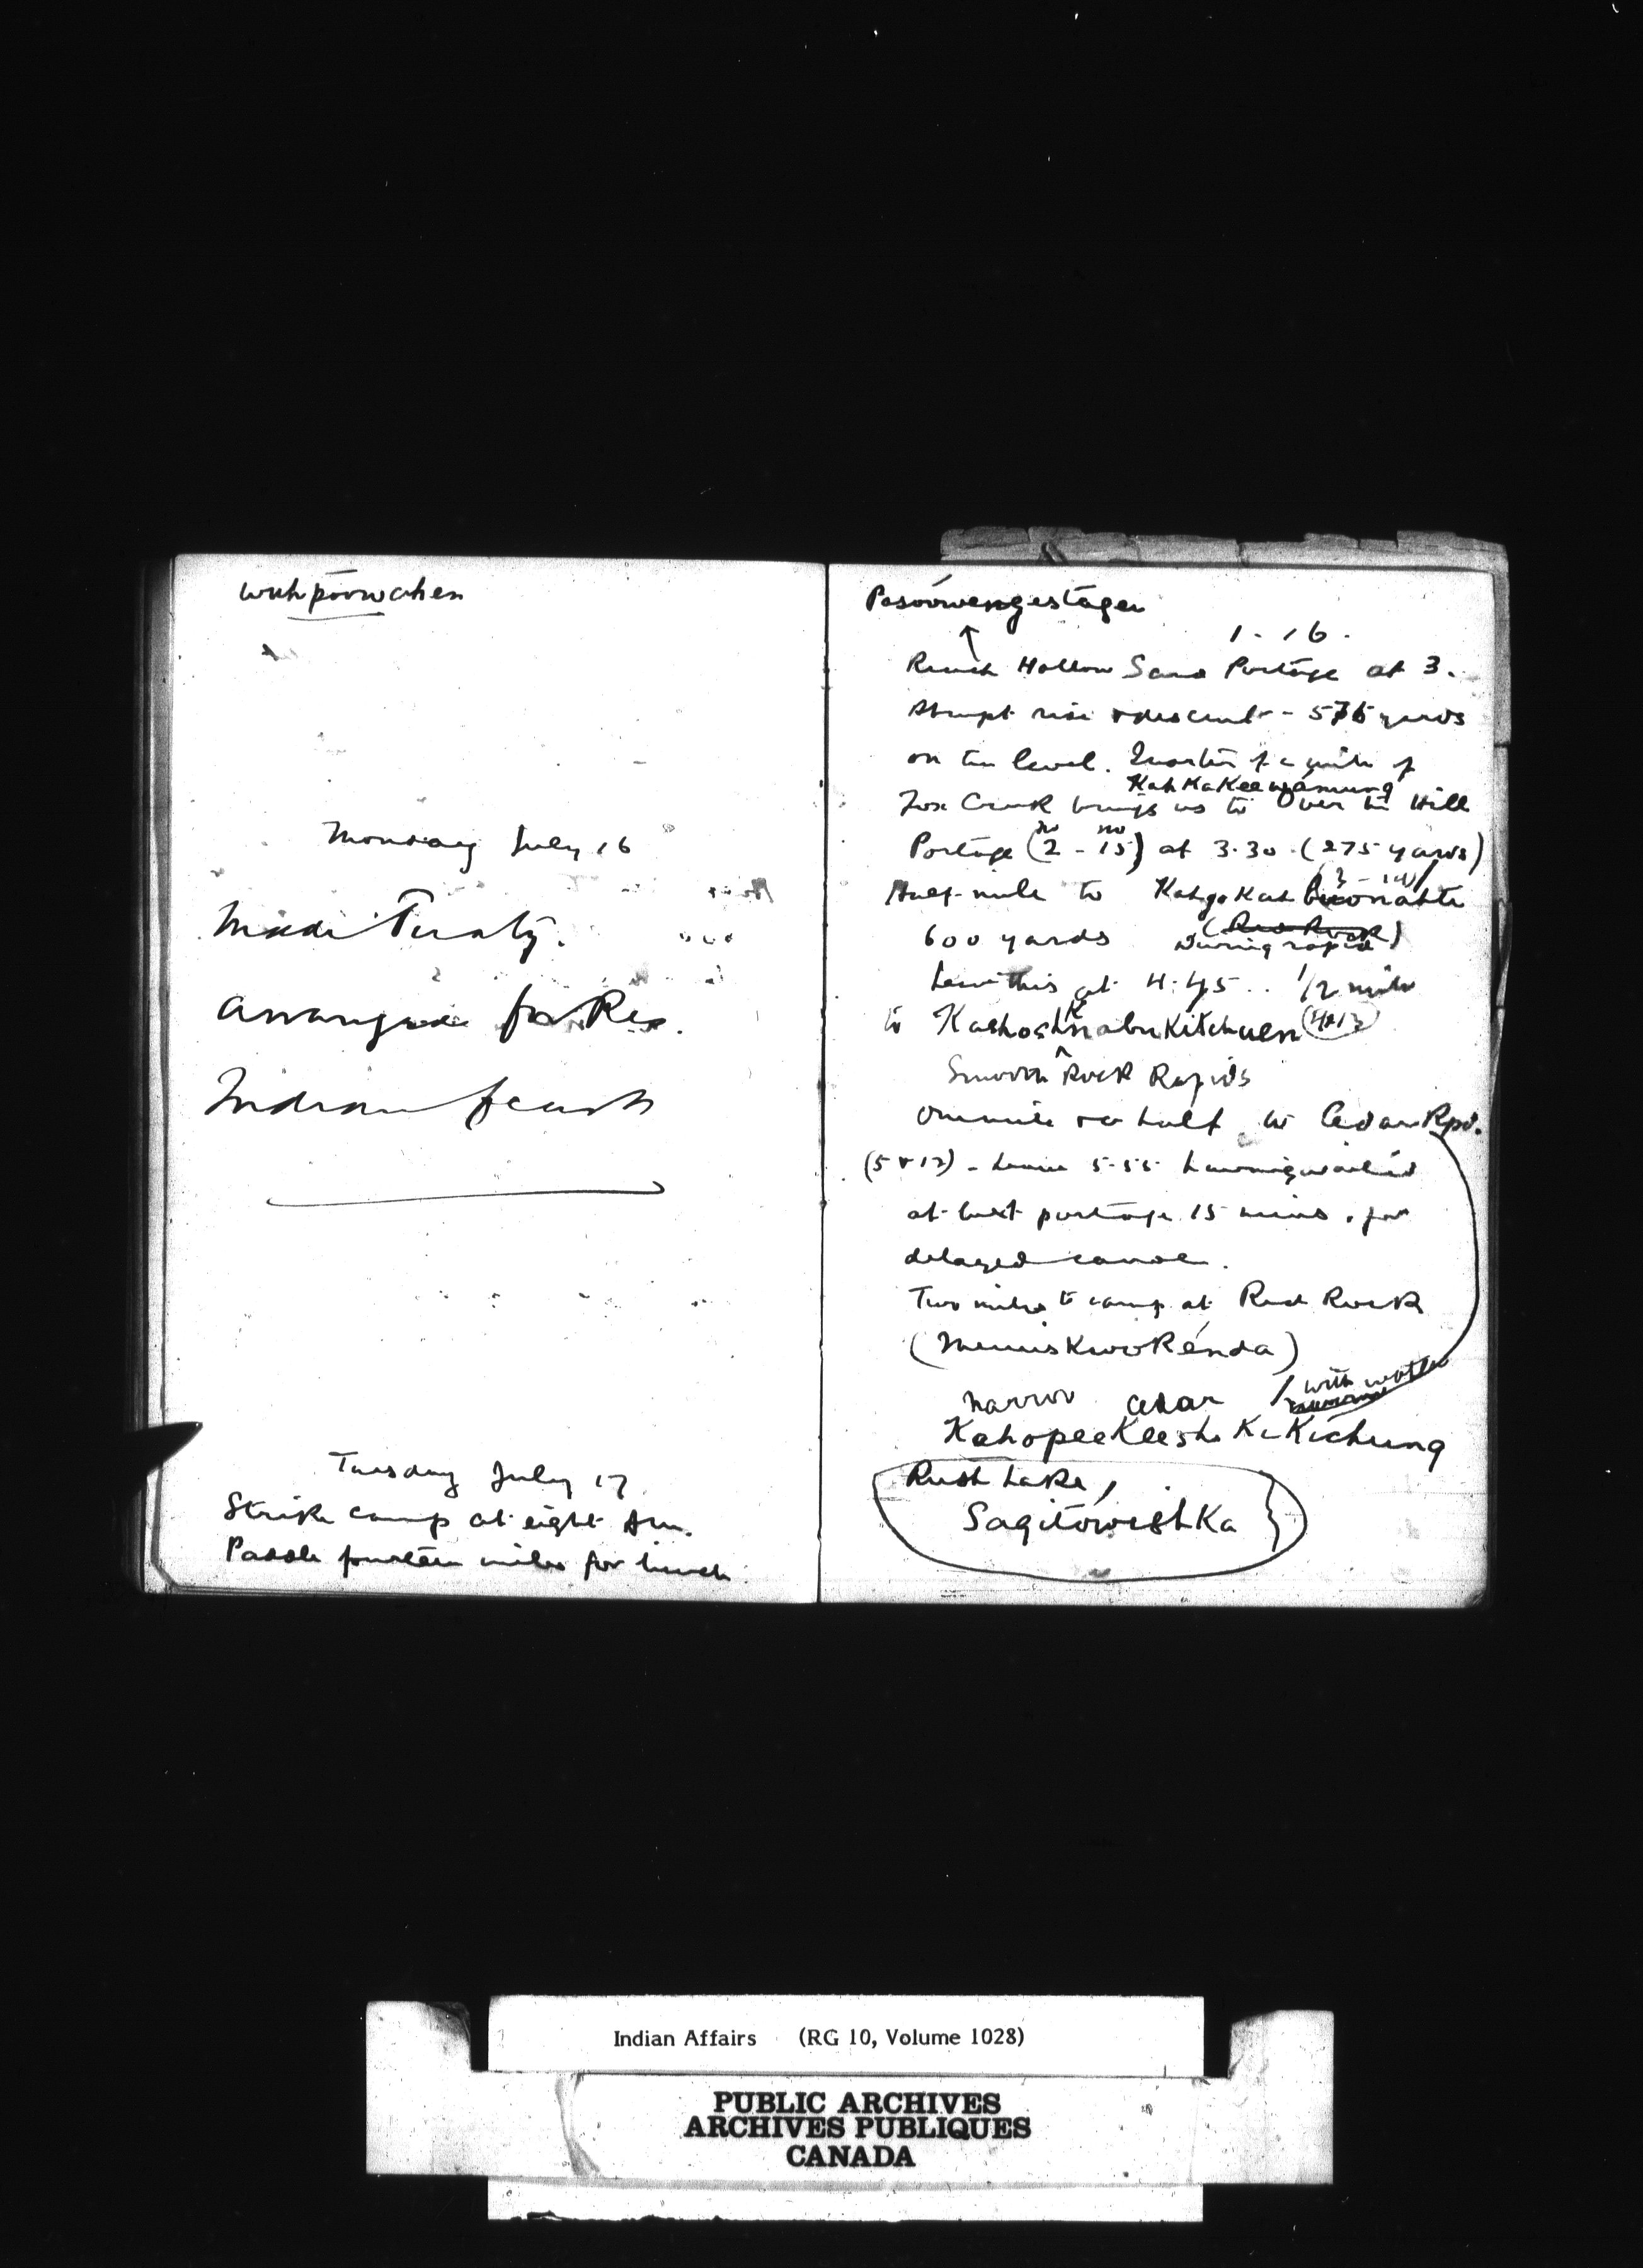 Wuhpoowahen
Monday July 16
Made Treaty.
Arranged for Res.
Indian feast
Tuesday July 17
Strike camp at eight Am.
Paddle fourteen miles for lunch
Pasoowengestagen
1 - 16.
Reach Hollow Sand Portage at 3.
Abrupt rise & descent - 575 yards
on the level. Quarter of a mile of
KahKaKeewamung
Fox Creek brings us to Over the Hill
Portage (2 - 15) at 3.30 (275 yards)
Half-mile to
600 yards (Red Rock)
rapid
Leave this at 4.45.. 1/2 mile
to
Smooth Rock Rapids
One mile & a half to Cedar Rpd.
(5 & 12) - Leave 5.55 having waited
at last portage 15 mins. for
delayed canoe.
Two miles to camp at Red Rock
(MemisKwoKenda)
narrow cedar with water
KahopeeKeesheKeKichung
Rush Lake,
SagitowishKa
Indian Affairs (RG 10, Volume 1028)
PUBLIC ARCHIVES
ARCHIVES PUBLIQUES
CANADA